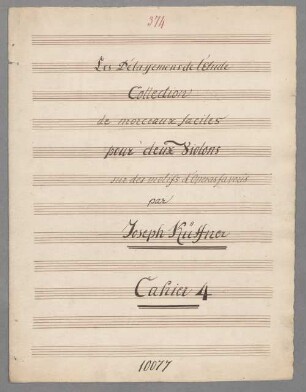 374
Les Délassemens de l'étude
Collection
de morceaux faciles
pour deux Violons
sur des motifs d'Operas favoris
par
Joseph Küffner
Cahier 4
10077